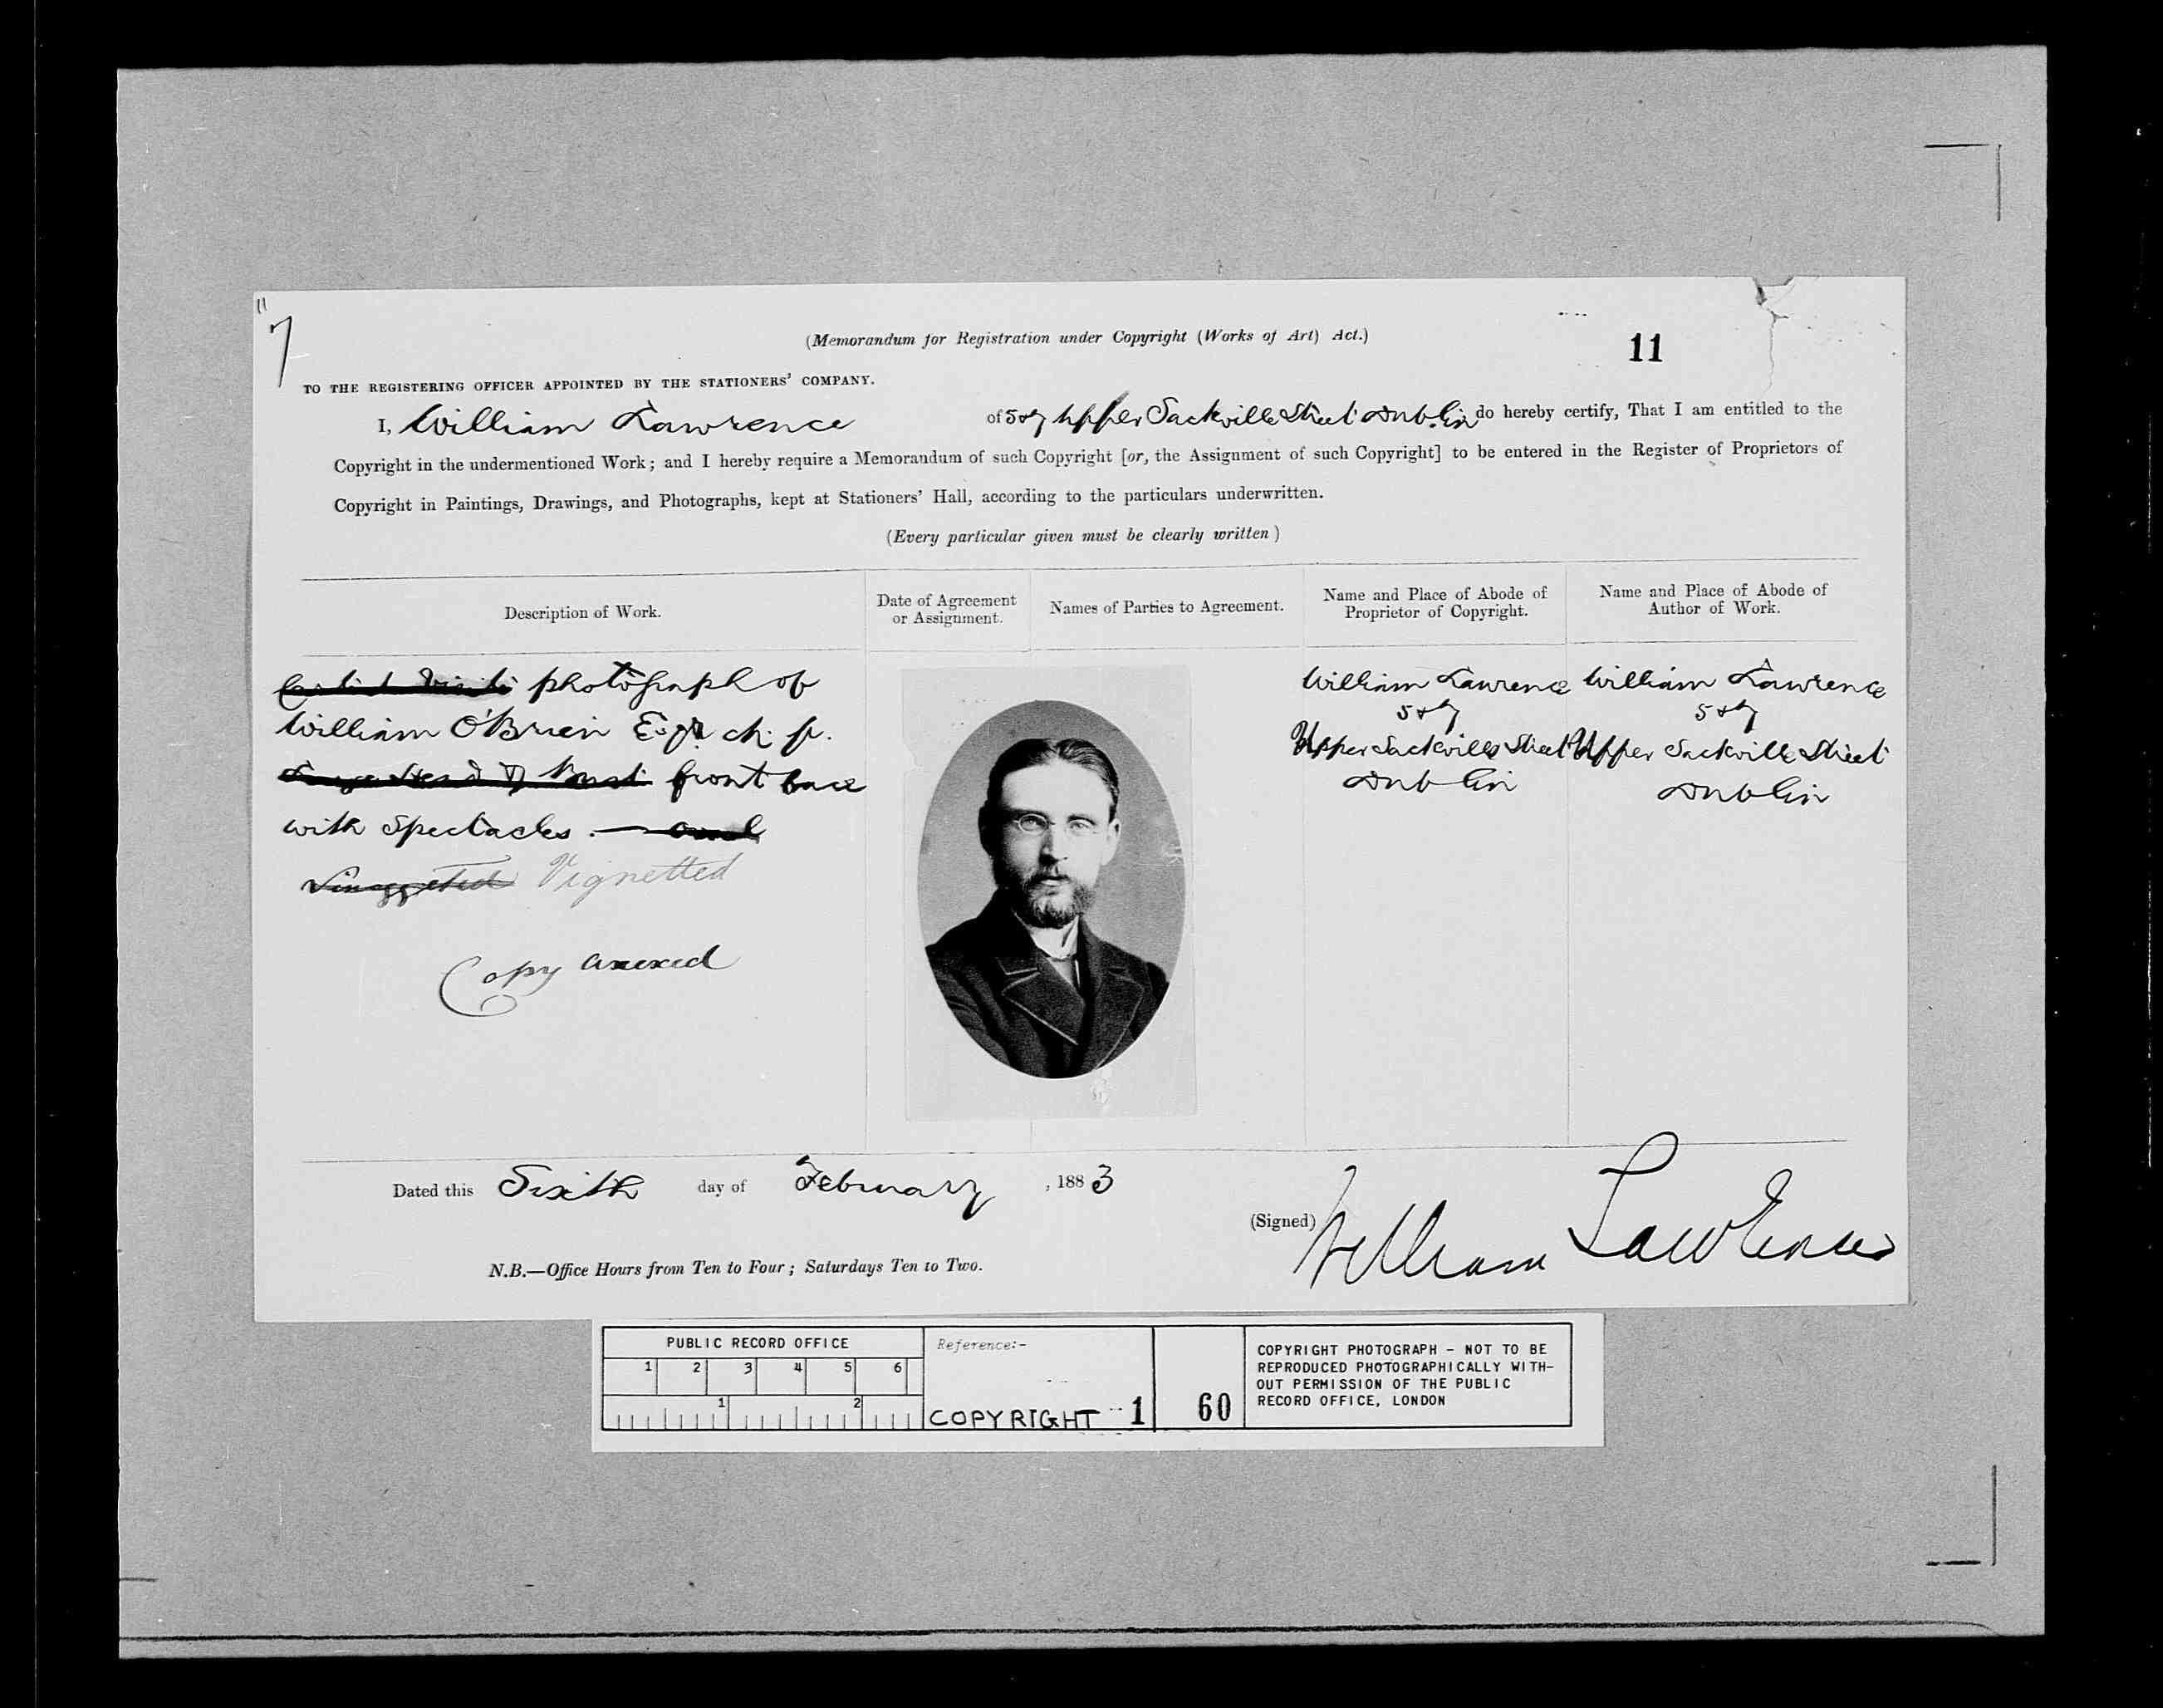 11
7
(Memorandum for Registration under Copyright (Works of Art) Act.)
11
TO THE REGISTERING OFFICER APPOINTED BY THE STATIONERS' COMPANY.
I, William Lawrence of 5 & 7 Upper Sackville Street Dublin do hereby certify, That I am entitled to the
Copyright in the undermentioned Work; and I hereby require a Memorandum of such Copyright [or, the Assignment of such Copyright] to be entered in the Register of Proprietors of
Copyright in Paintings, Drawings, and Photographs, kept at Stationers' Hall, according to the particulars underwritten.
(Every particular given must be clearly written)
Description of Work.
Date of Agreement
or Assignment.
Names of Parties to Agreement.
Name and Place of Abode of
Proprietor of Copyright.
Name and Place of Abode of
Author of Work.
photograph of
William O'Brien Esqr M. P.
front face
with Spectacles.
Vignetted
Copy anexed
William Lawrence
5 & 7
Upper Sackville Street
Dublin
William Lawrence
5 & 7
Upper Sackville Street
Dublin
Dated this Sixth day of February, 1883
(Signed) William Lawrence
N.B.—Office Hours from Ten to Four; Saturdays Ten to Two.
PUBLIC RECORD OFFICE
1 2 3 4 5 6
1 2
Reference:-
COPYRIGHT 1
60
COPYRIGHT PHOTOGRAPH - NOT TO BE
REPRODUCED PHOTOGRAPHICALLY WITH-
OUT PERMISSION OF THE PUBLIC
RECORD OFFICE, LONDON